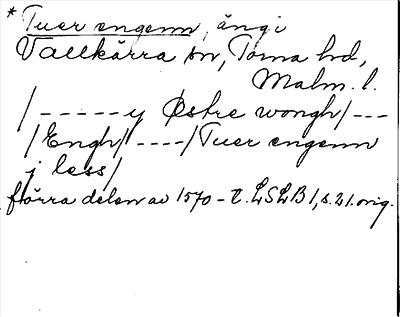 * Tuer engenn, äng i
Vallkärra sn, Torna hd,
Malm. l.
/-----y Østre wongh/---
/Engh/----/Tuer engenn
j less/
förra delen av 1570-t. LSLB 1, s. 21. orig.